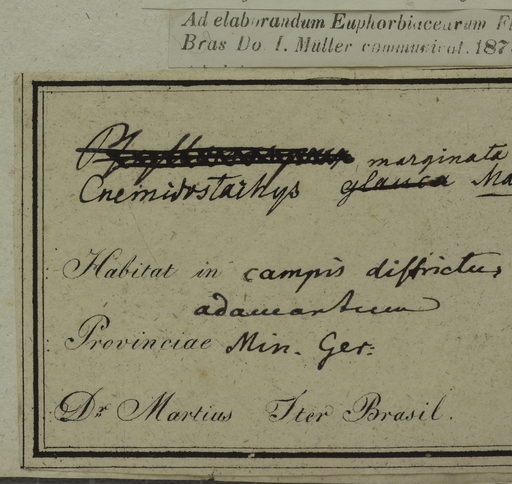 Ad elaborandum Euphorbiacearum Fl
Bras Do. I. Müller communicat. 187
marginata
Cnemidostachys glauca Ma
Habitat in campis districtus
adamantum
Provinciae Min. Ger:
Dr Martius Iter Brasil.